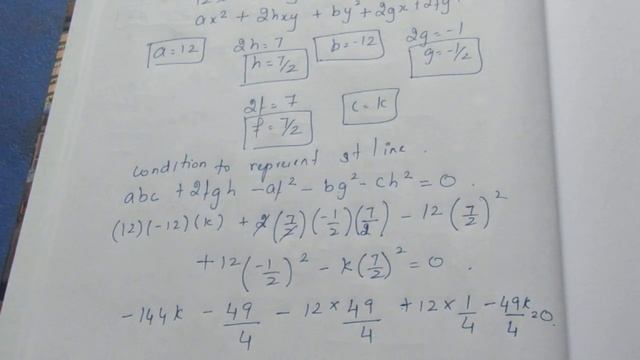 ax² + 2hxy + by² + 2gx + 2fy
a = 12 2h = 7 b = -12 2g = -1
h = 7/2 g = -1/2
2f = 7 c = k
f = 7/2
condition to represent st line.
abc + 2fgh - af² - bg² - ch² = 0.
(12)(-12)(k) + 2(7/2)(-1/2)(7/2) - 12(7/2)²
+ 12(-1/2)² - k(7/2)² = 0.
-144k - 49/4 - 12 × 49/4 + 12 × 1/4 - 49k/4 = 0.